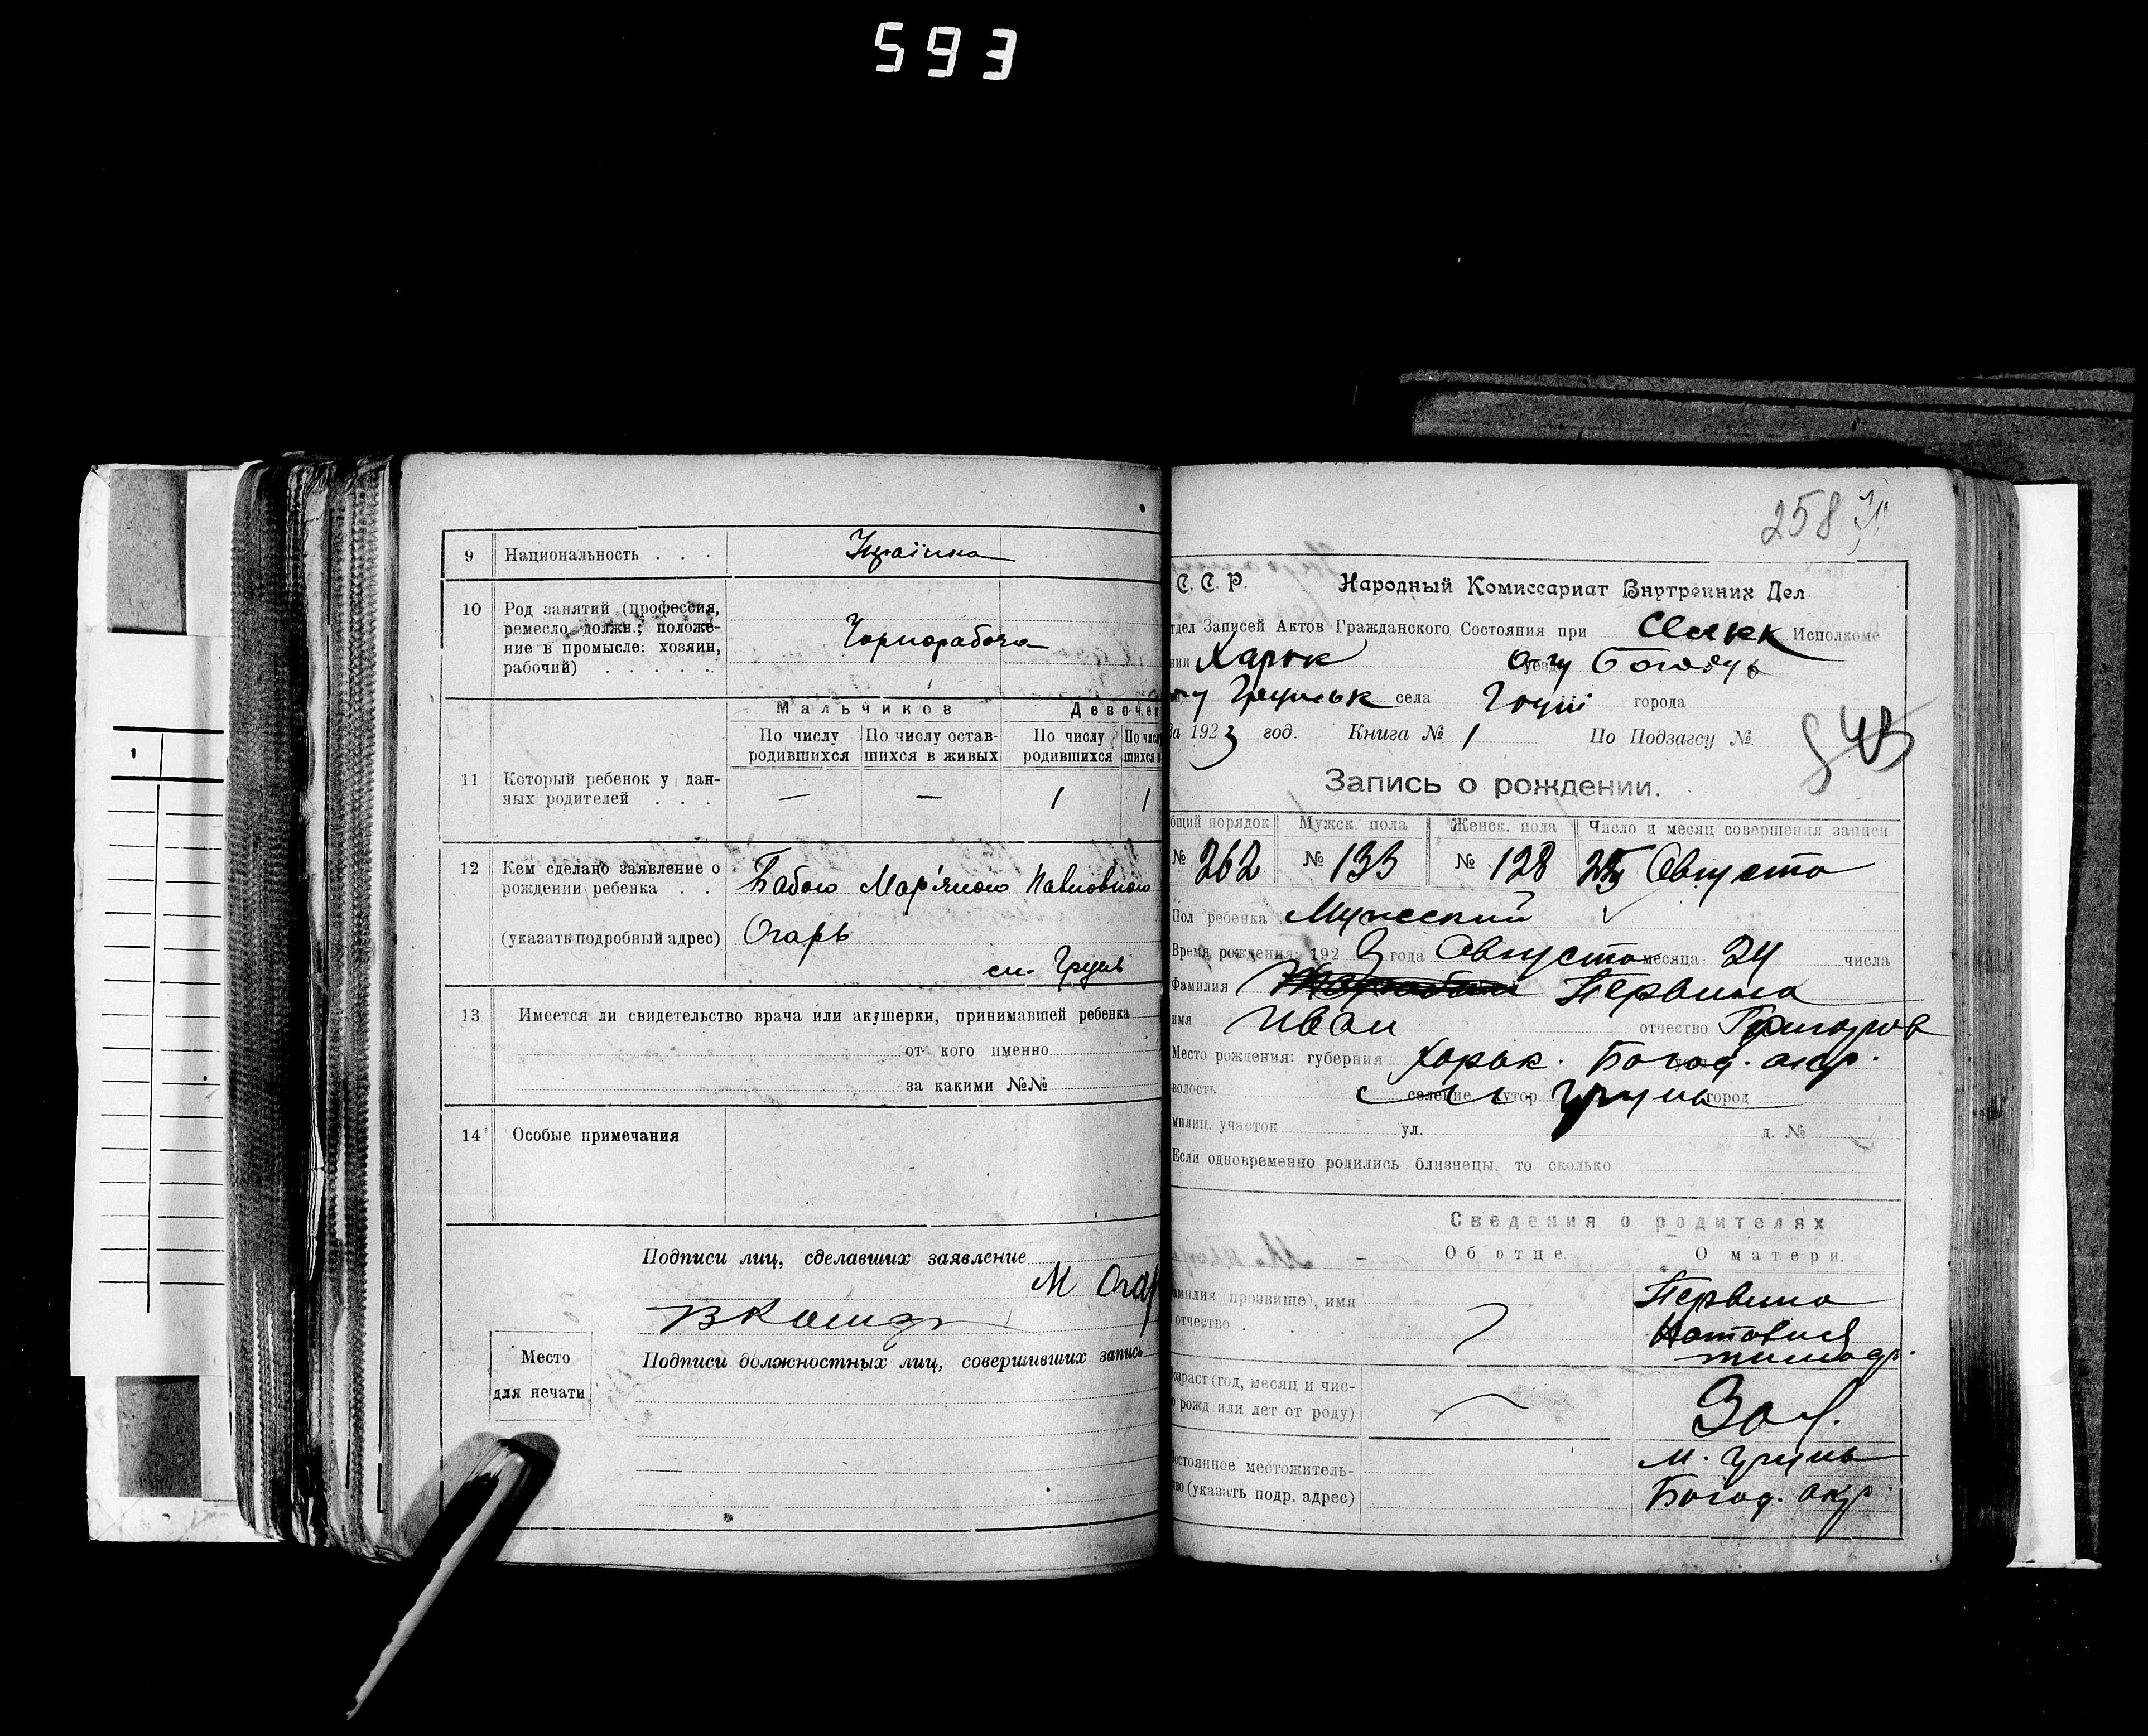 593
9 Национальность . . . Українка
10 Род занятий (профессия,
ремесло, должн.; положе-
ние в промысле: хозяин,
рабочий) . . . . .
Чорнорабоча
Мальчиков Девочек
По числу родившихся По числу остав-шихся в живых По числу родившихся
11 Который ребенок у дан-
ных родителей . . . — — 1 1
12 Кем сделано заявление о
рождении ребенка . . Бабою Мар'яною Павловною
(указать подробный адрес) Огарь
см. Грунь
13 Имеется ли свидетельство врача или акушерки, принимавшей ребенка
от кого именно
за какими №№
14 Особые примечания
Подписи лиц, сделавших заявление
М Огар
Подписи должностных лиц, совершивших запись
Место
для печати
258
С. С. Р. Народный Комиссариат Внутренних Дел
тдел Записей Актов Гражданского Состояния при Исполкоме
нии Харьк уезд
села города
За 1923 год. Книга № 1 По Подзагсу №
Запись о рождении.
бщий порядок Мужск. пола Женск. пола Число и месяц совершения записи
№ 262 № 133 № 128 25 Августа
Пол ребенка Мужеский
Время рождения: 1923 года Августа месяца 24 числа
Фамилия Первина
имя Иван отчество Григоров
Место рождения: губерния Харьк. Богод. окр.
волость селение хутор Грунь город
милиц. участок ул. д. №
Если одновременно родились близнецы, то сколько
Сведения о родителях
Об отце. О матери.
амилия (прозвище), имя
отчество . Первина
озраст (год, месяц и чис-
о рожд или лет от роду) 30 л.
остоянное местожитель-
во (указать подр. адрес) М. Грунь
Богод. окр.